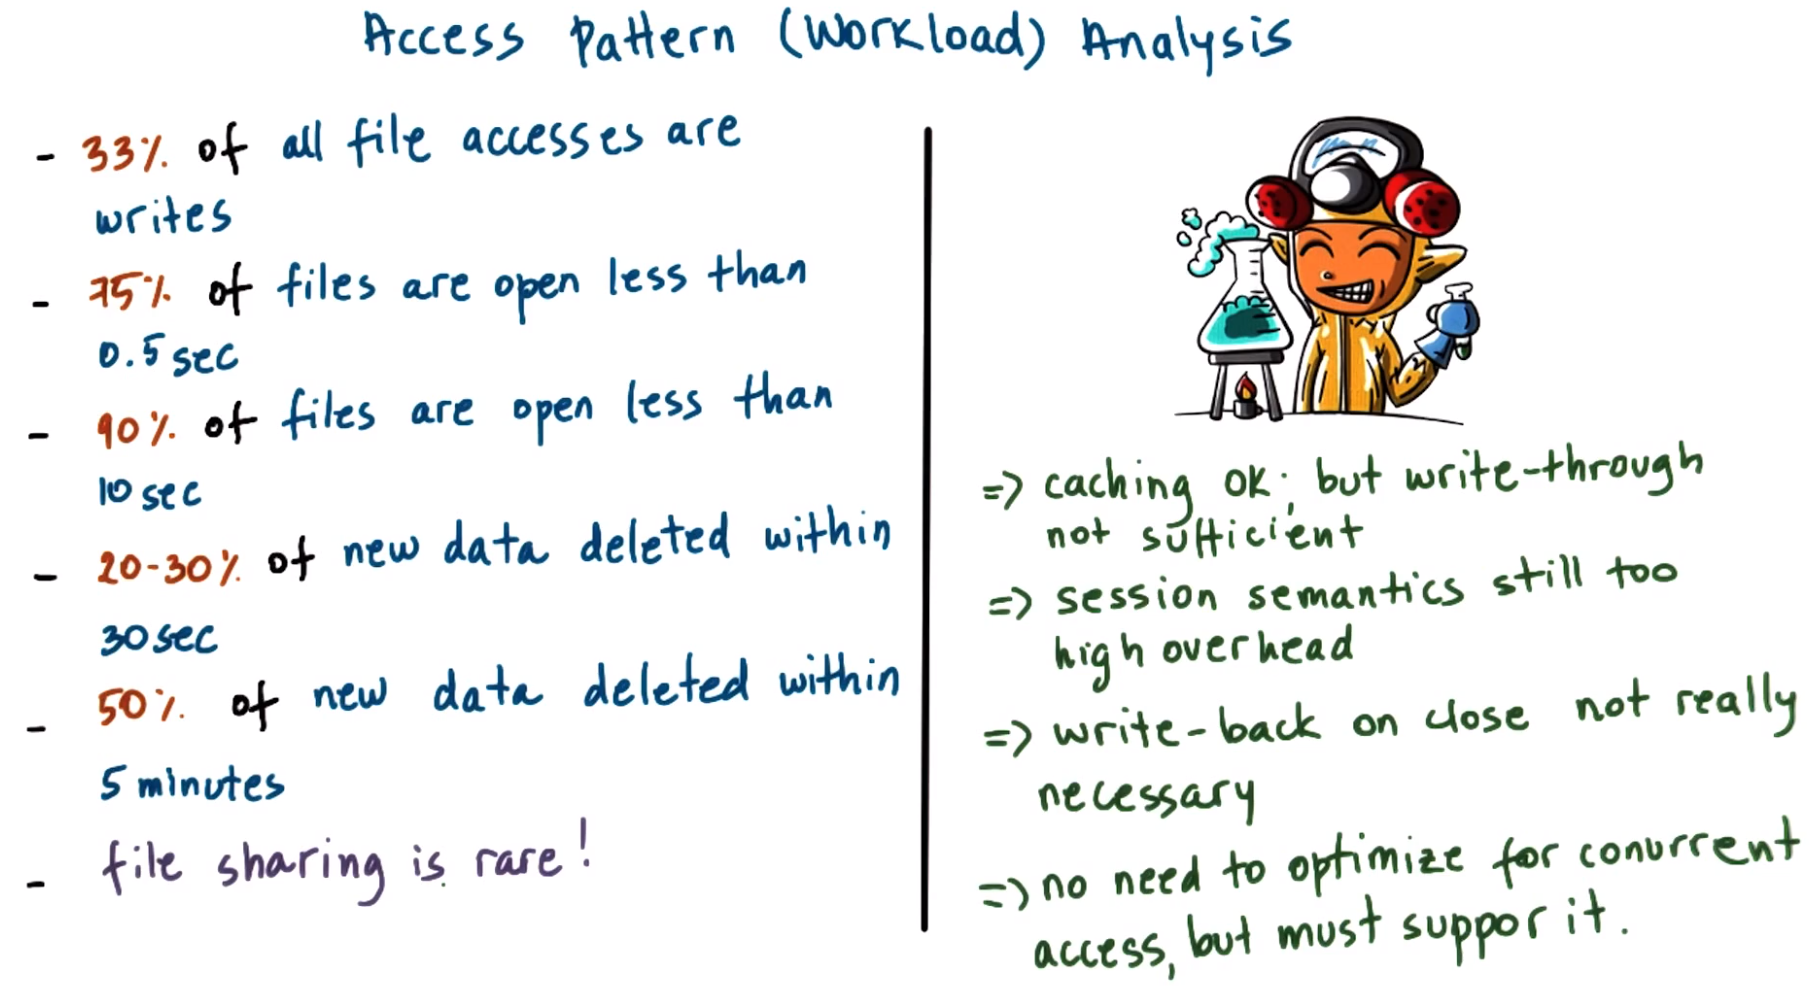 Access Pattern (Workload) Analysis
- 33% of all file accesses are
writes
- 75% of files are open less than
0.5 sec
- 90% of files are open less than
10 sec
- 20-30% of new data deleted within
30 sec
- 50% of new data deleted within
5 minutes
- file sharing is rare!
=> caching OK; but write-through
not sufficient
=> session semantics still too
high overhead
=> write-back on close not really
necessary
=> no need to optimize for conurrent
access, but must suppor it.